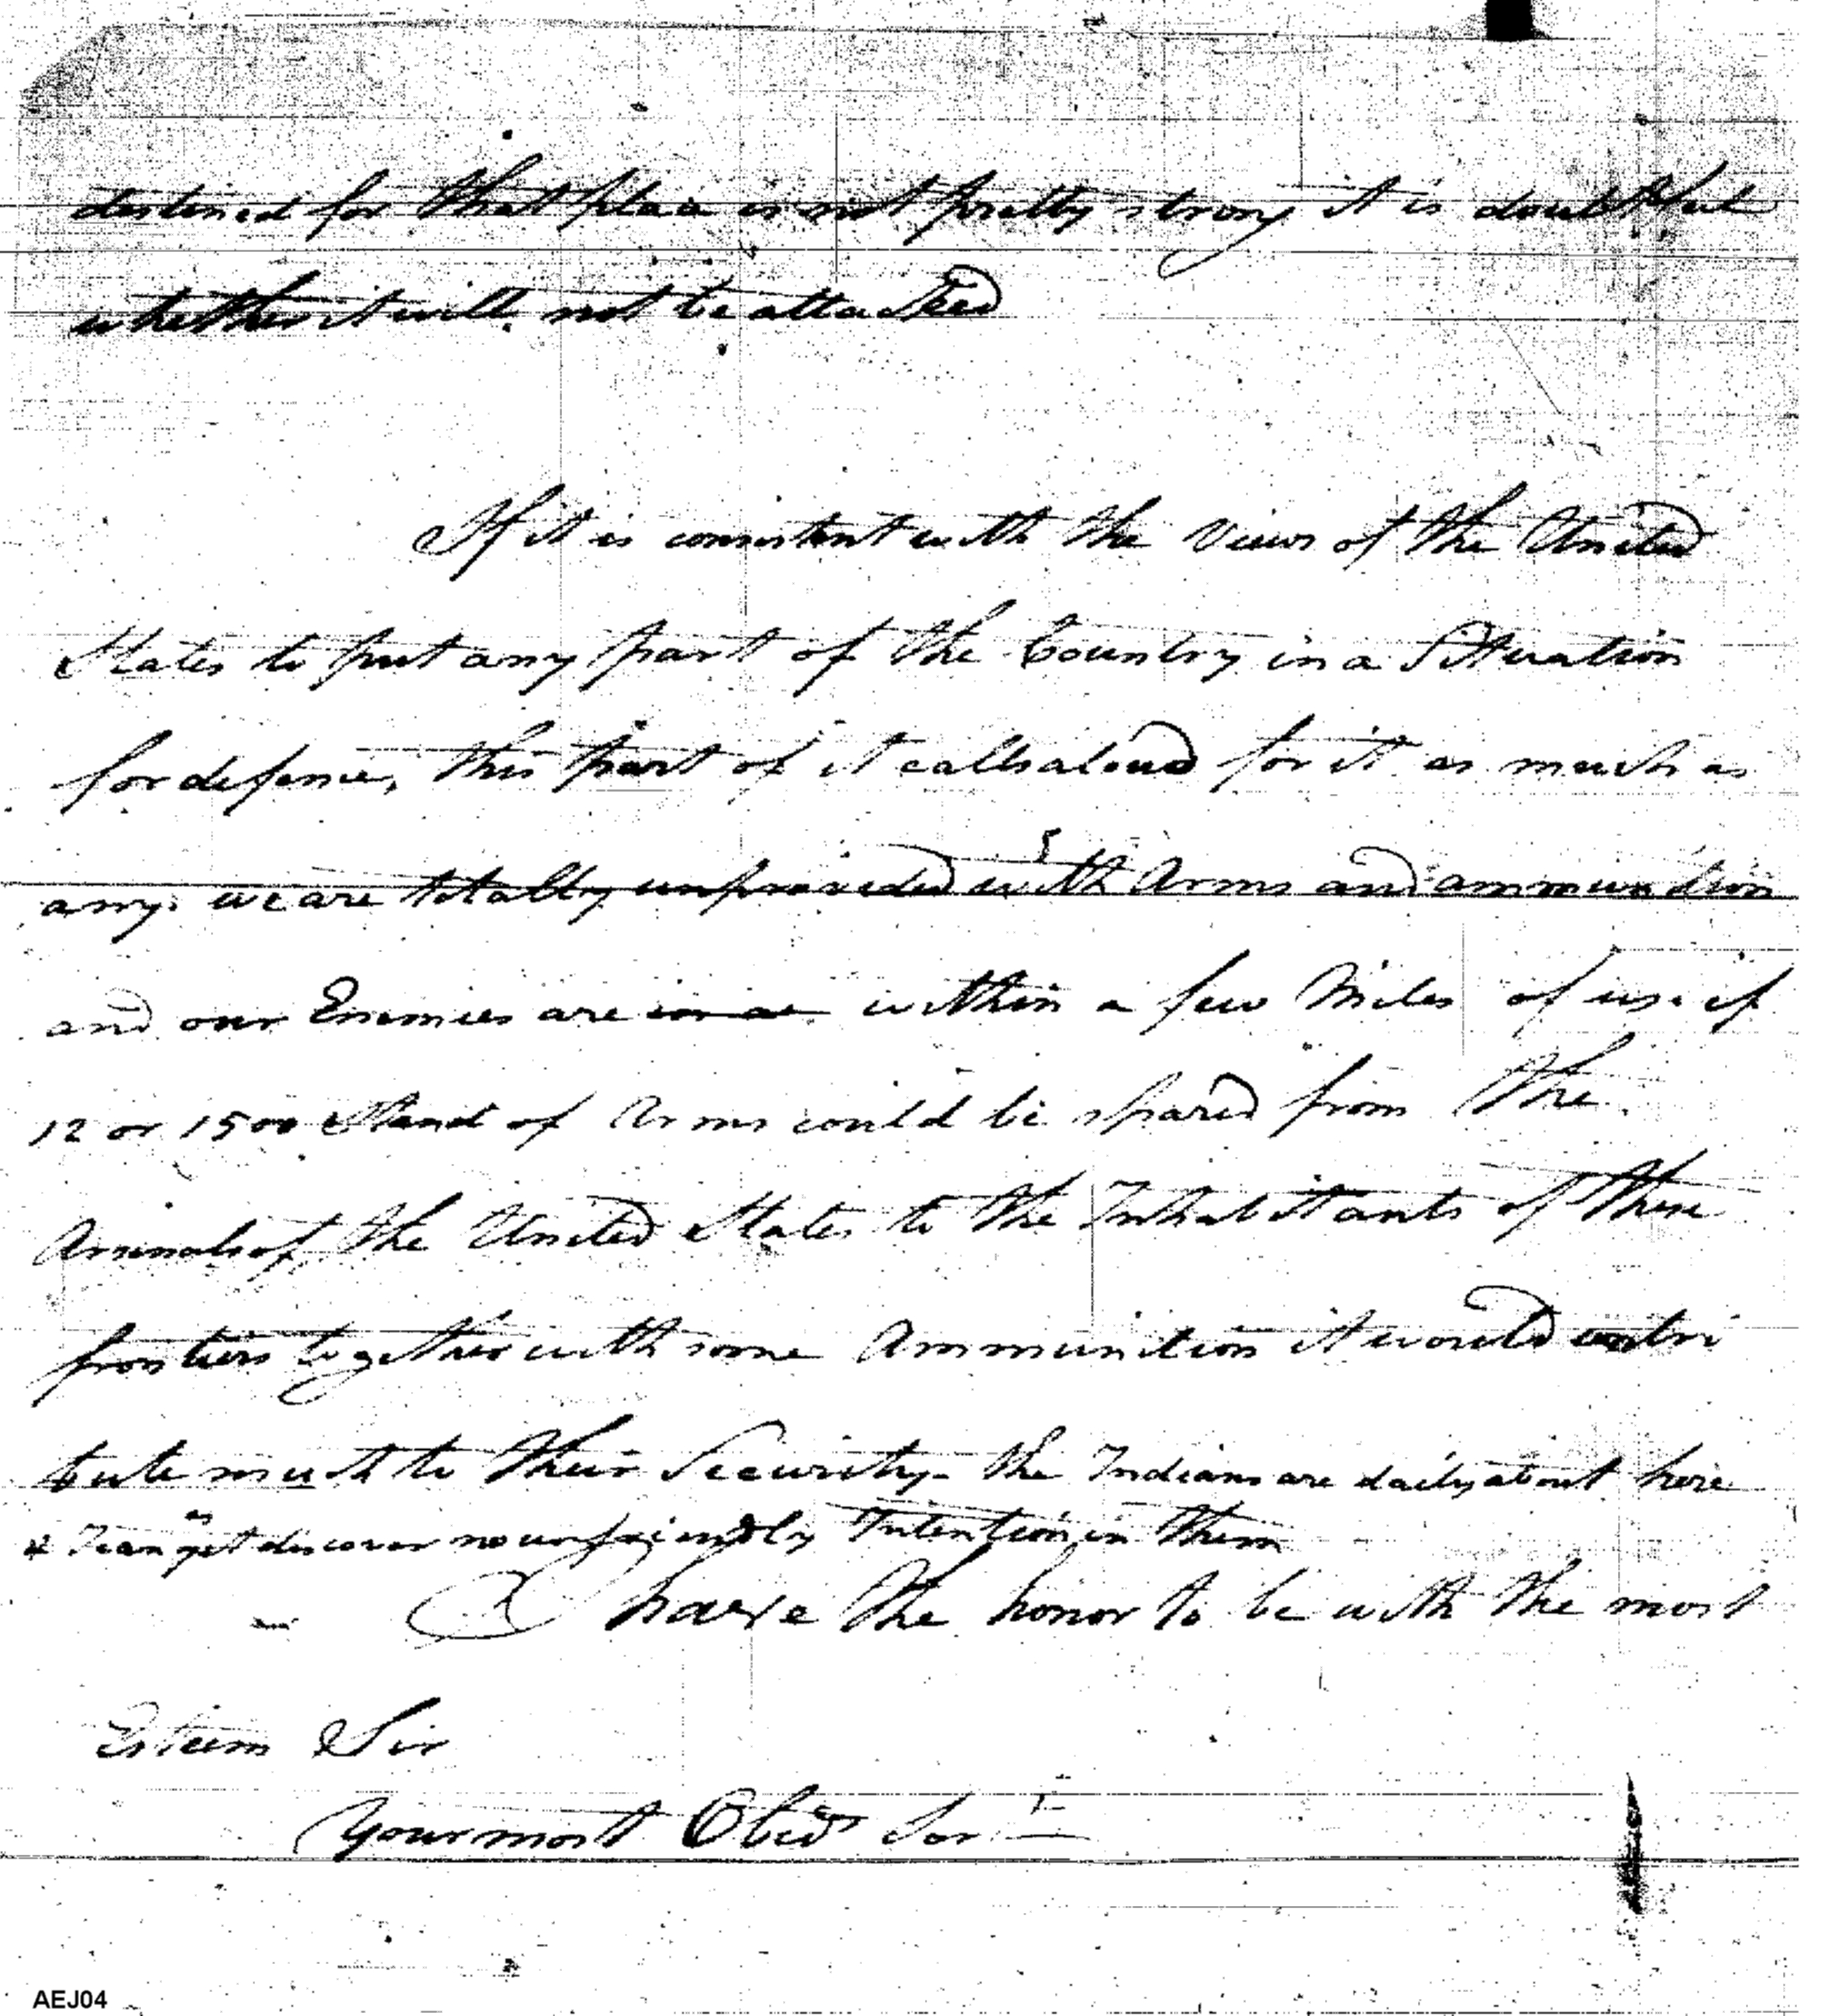 destined for that place is not pretty strong it is doubtful
whether it will not be attacked
If it is consistent with the Views of the United
States to put any part of the Country in a Situation
for defence, this part of it calls aloud for it as much as
any. we are totally unprovided with Arms and ammunition
and our Enemies are in a within a few Miles of us. if
12 or 1500 Stand of Arms could be spared from the
Arsenals of the United States to the Inhabitants of these
frontiers together with some Ammunition it would contri
bute much to their Security - the Indians are daily about here
& I can as yet discover no unfriendly Intention in them
I have the honor to be with the most
Esteem Sir
Your most Obed Sert
AEJ04